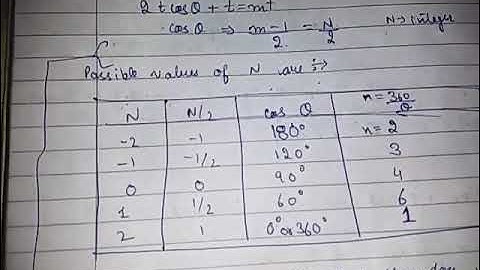 2 t cosθ + t = mt
cosθ ⇒ m-1/2 = N/2 N → integer
Possible values of N are :→
N N/2 cos θ n = 360/θ
-2 -1 180° n = 2
-1 -1/2 120° 3
0 0 90° 4
1 1/2 60° 6
2 1 0° or 360° 1